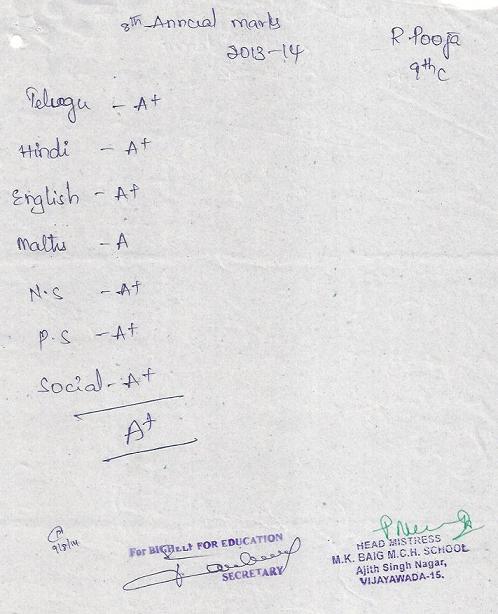 8th Annual marks
2013-14
R. Pooja
9th C
Telugu - A+
Hindi - A+
English - A+
Maths - A
N.S - A+
P.S - A+
Social - A+
A+
9/5/14
For BIGHELP FOR EDUCATION
SECRETARY
HEAD MISTRESS
M.K. BAIG M.C.H. SCHOOL
Ajith Singh Nagar,
VIJAYAWADA-15.